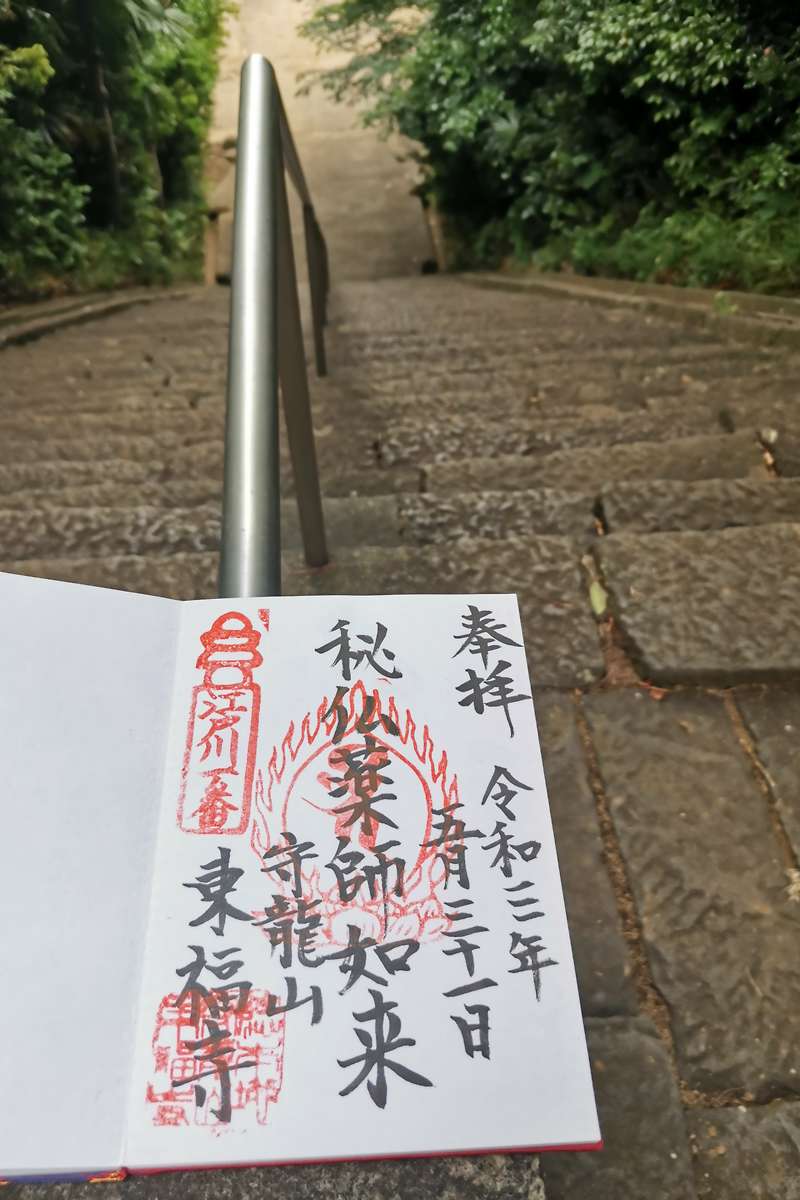 奉拝
令和三年
五月三十一日
秘仏薬師如来
守龍山
東福寺
江戸川一番